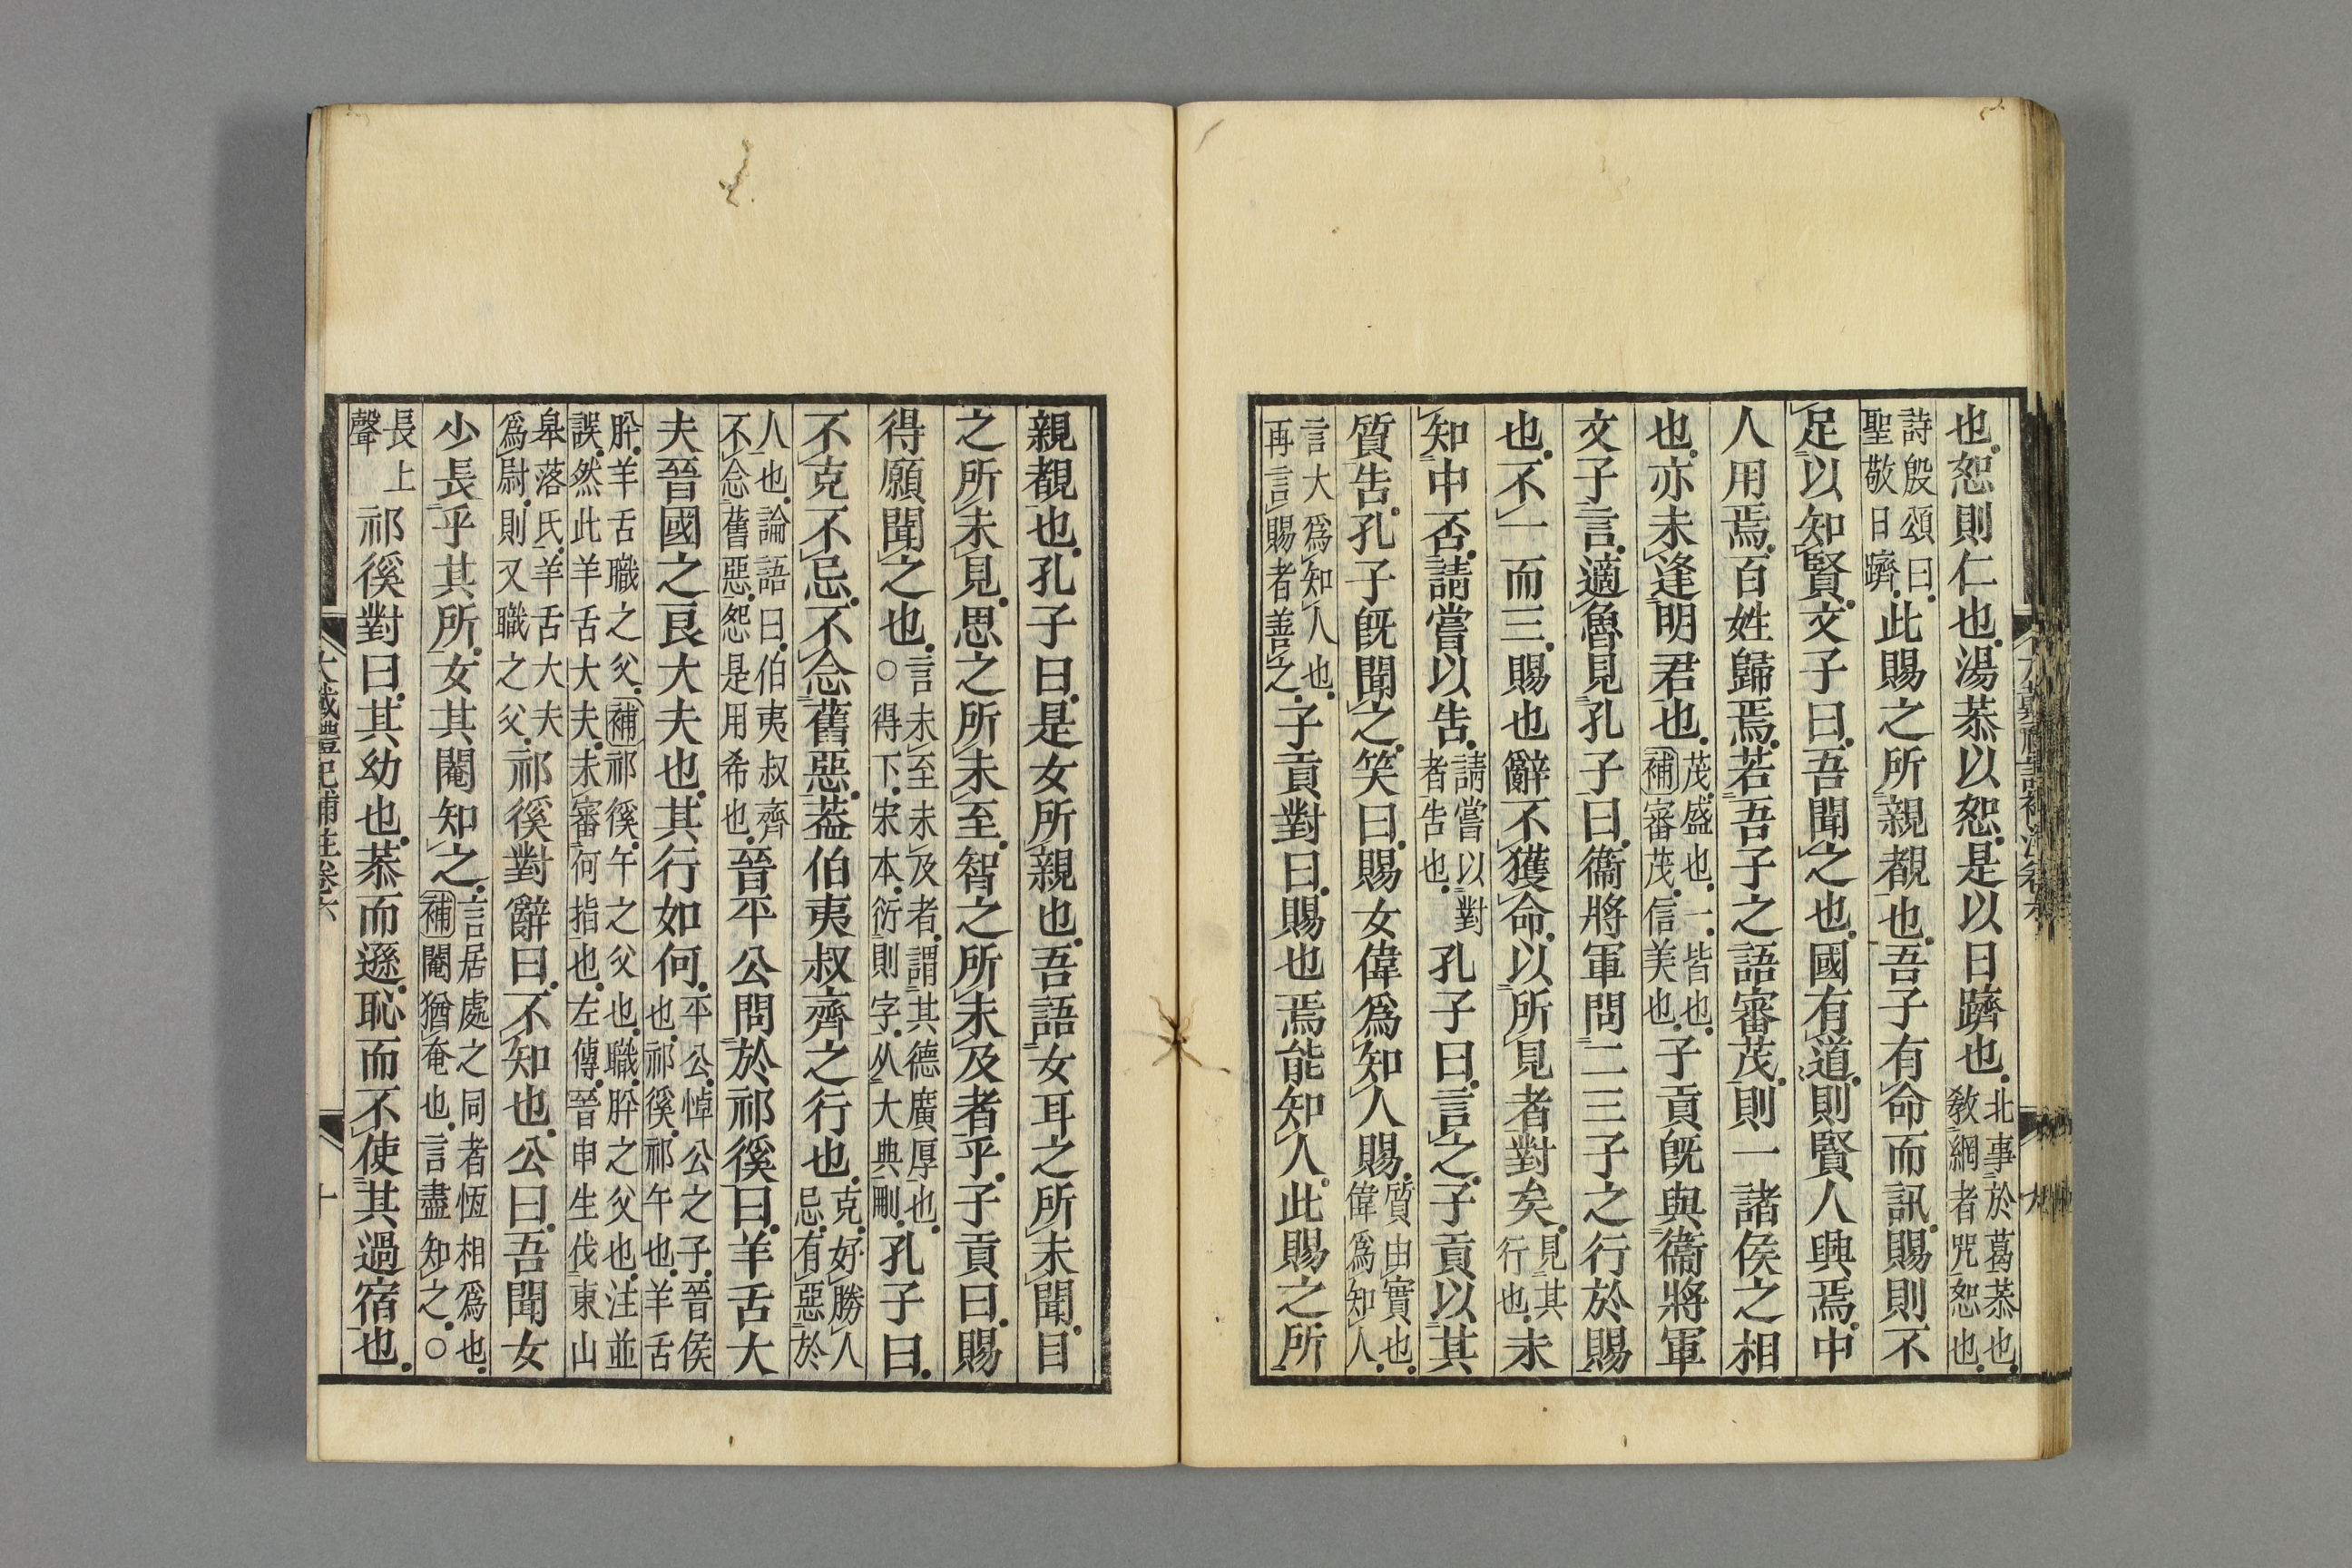 也恕則仁也湯恭以恕是以日躋也北事於葛恭也敎網者咒恕也
詩殷頌曰聖敬日躋此賜之所親覩也吾子有命而訊賜則不
足以知賢文子曰吾聞之也國有道則賢人興焉中
人用焉百姓歸焉若吾子之語審茂則一諸侯之相
也亦未逢明君也茂盛也一皆也補審茂信美也子貢旣與衞將軍
文子言適魯見孔子曰衞將軍問二三子之行於賜
也不一而三賜也辭不獲命以所見者對矣見其行也未
知中否請嘗以告請嘗以對者告也孔子曰言之子貢以其
質告孔子旣聞之笑曰賜女偉爲知人賜質由實也偉爲知人
言大爲知人也再言賜者善之子貢對曰賜也焉能知人此賜之所
親覩也孔子曰是女所親也吾語女耳之所未聞目
之所未見思之所未至智之所未及者乎子貢曰賜
得願聞之也言未至未及者謂其德廣厚也○得下宋本衍則字从大典刪孔子曰
不克不忌不念舊惡蓋伯夷叔齊之行也克好勝人忌有惡於
人也論語曰伯夷叔齊不念舊惡怨是用希也晉平公問於祁徯曰羊舌大
夫晉國之良大夫也其行如何平公悼公之子晉侯也祁徯祁午也羊舌
肸羊舌職之父補祁徯午之父也職肸之父也注並誤然此羊舌大夫未審何指也左傳晉申生伐東山
皐落氏羊舌大夫爲尉則又職之父祁徯對辭曰不知也公曰吾聞女
少長乎其所女其閹知之言居處之同者恆相爲也補閹猶奄也言盡知之○
長上聲祁徯對曰其幼也恭而遜恥而不使其過宿也
大戴禮記補注卷六
十